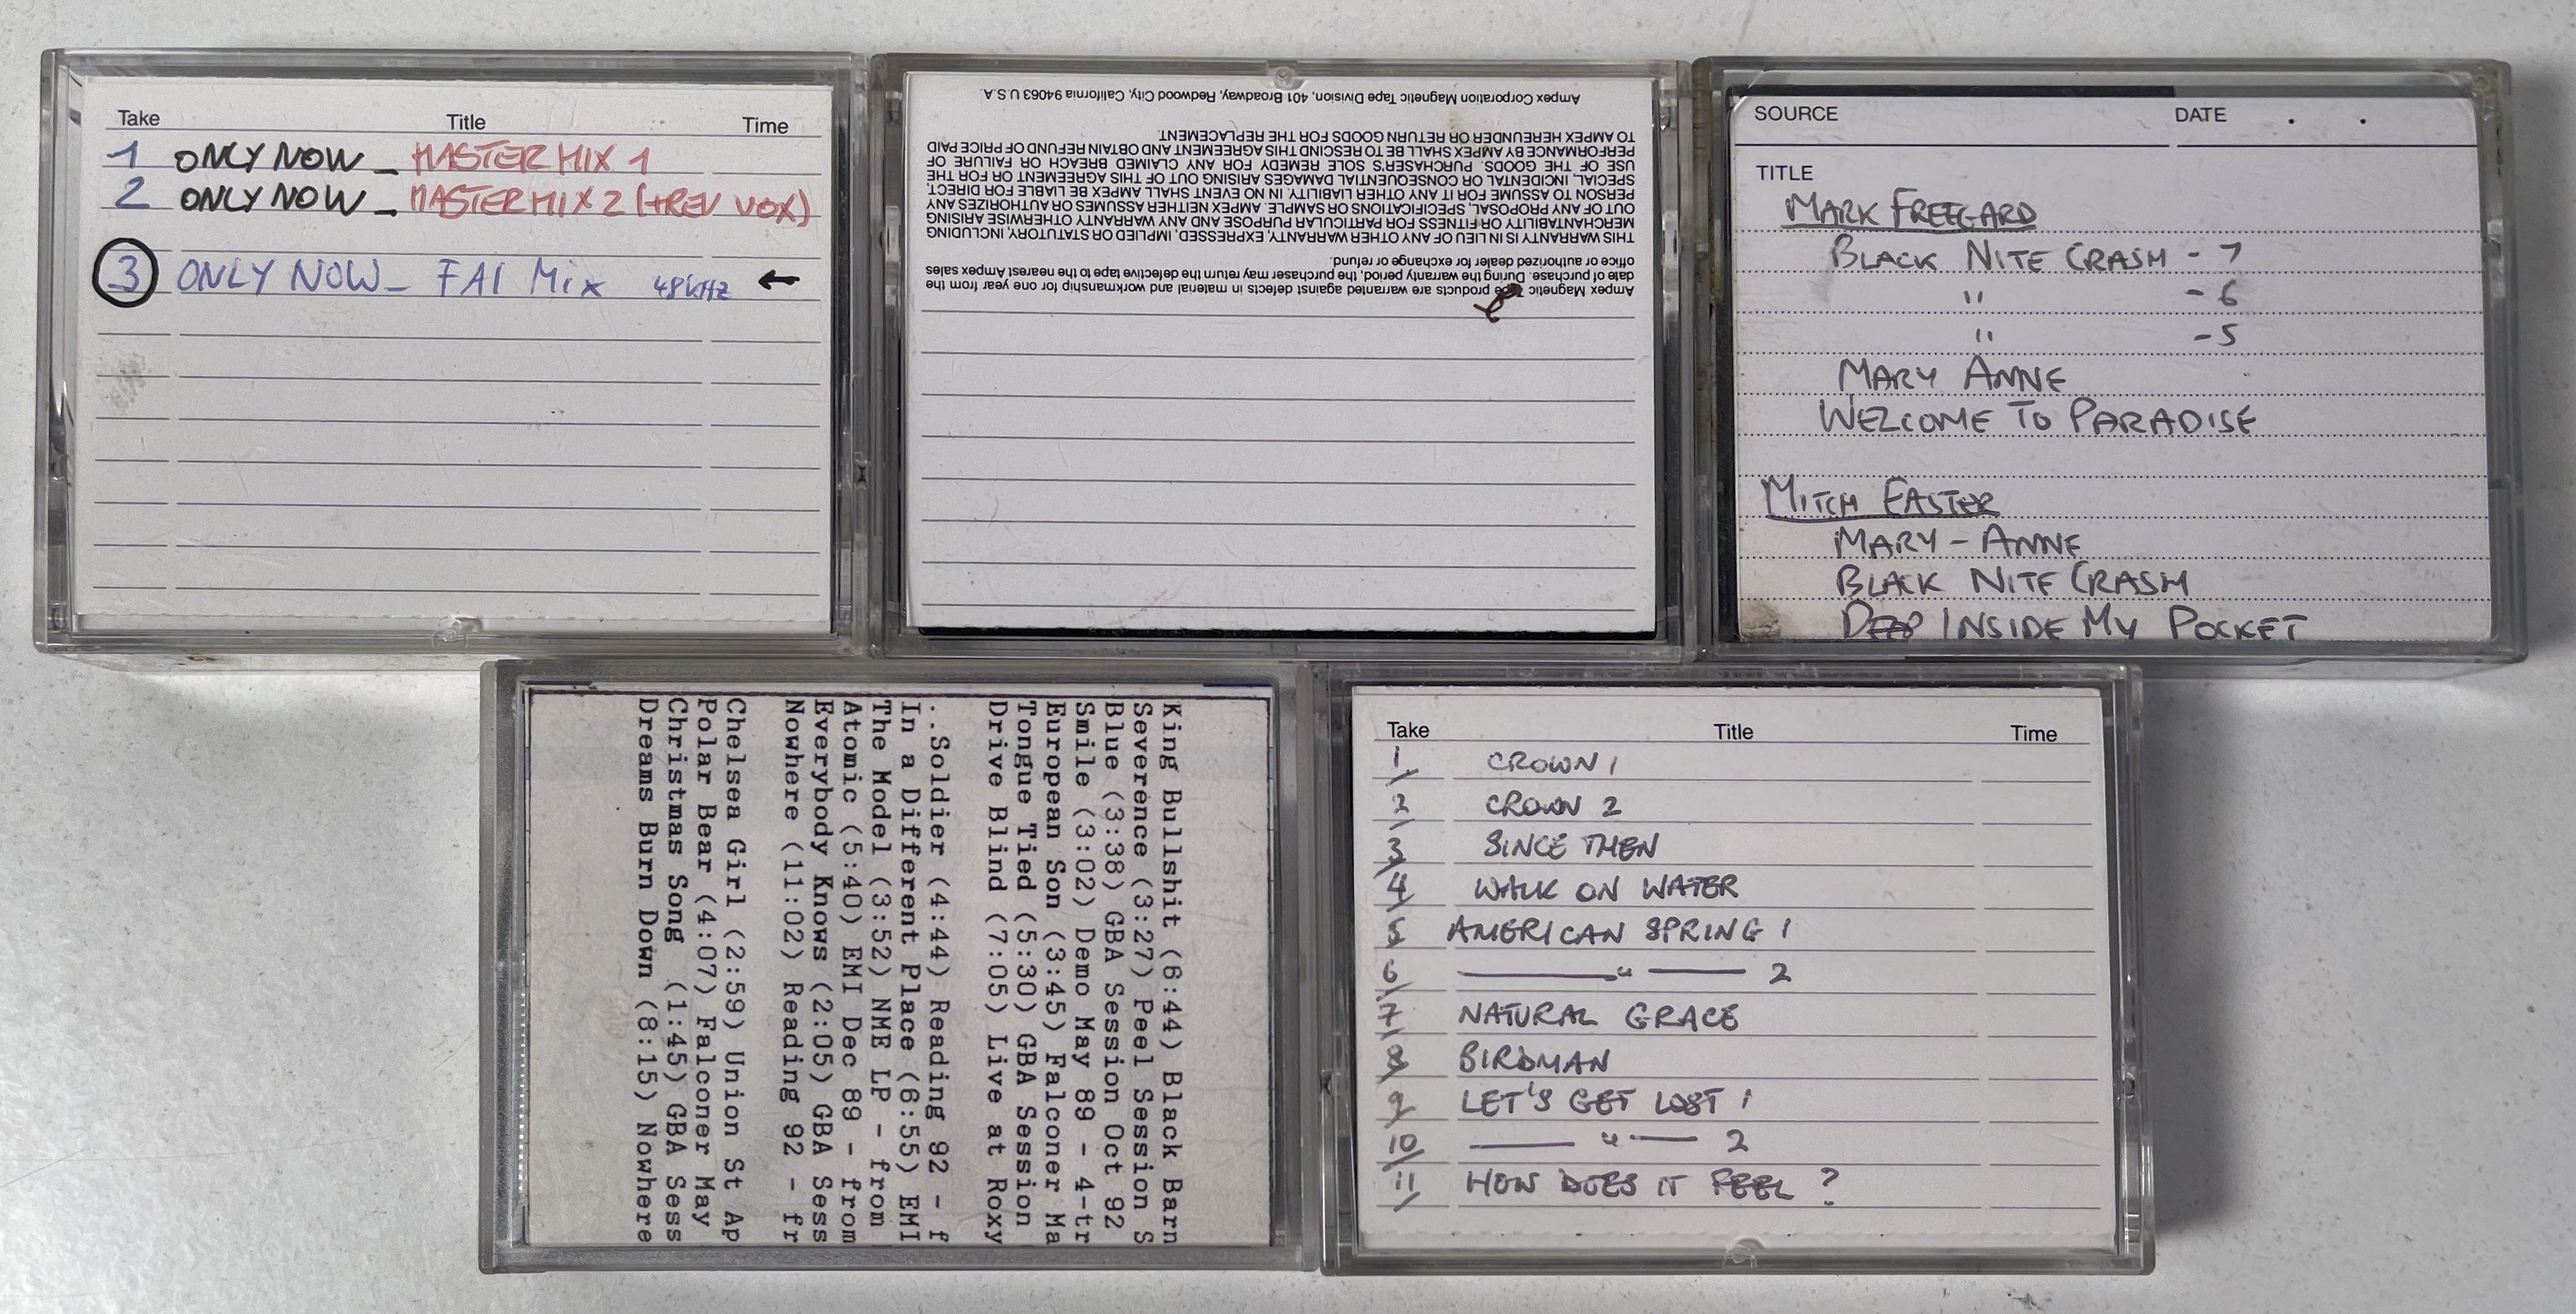 Take Title Time
1 ONLY NOW _ MASTER MIX 1
2 ONLY NOW _ MASTER MIX 2 (+REV VOX)
3 ONLY NOW _ FAI Mix 48kHz ←
Ampex Corporation Magnetic Tape Division, 401 Broadway, Redwood City, California 94063 U.S.A.
TO AMPEX HEREUNDER OR RETURN GOODS FOR THE REPLACEMENT.
PERFORMANCE BY AMPEX SHALL BE TO RESCIND THIS AGREEMENT AND OBTAIN REFUND OF PRICE PAID
USE OF THE GOODS. PURCHASER'S SOLE REMEDY FOR ANY CLAIMED BREACH OR FAILURE OF
SPECIAL, INCIDENTAL OR CONSEQUENTIAL DAMAGES ARISING OUT OF THIS AGREEMENT OR FOR THE
PERSON TO ASSUME FOR IT ANY OTHER LIABILITY. IN NO EVENT SHALL AMPEX BE LIABLE FOR DIRECT,
OUT OF ANY PROPOSAL, SPECIFICATIONS OR SAMPLE. AMPEX NEITHER ASSUMES OR AUTHORIZES ANY
MERCHANTABILITY OR FITNESS FOR PARTICULAR PURPOSE AND ANY WARRANTY OTHERWISE ARISING
THIS WARRANTY IS IN LIEU OF ANY OTHER WARRANTY, EXPRESSED, IMPLIED OR STATUTORY, INCLUDING
office or authorized dealer for exchange or refund.
date of purchase. During the warranty period, the purchaser may return the defective tape to the nearest Ampex sales
Ampex Magnetic Tape products are warranted against defects in material and workmanship for one year from the
SOURCE DATE . .
TITLE
MARK FREEGARD
BLACK NITE CRASH - 7
" - 6
" - 5
MARY ANNE
WELCOME TO PARADISE
MITCH EASTER
MARY - ANNE
BLACK NITE CRASH
DEEP INSIDE MY POCKET
King Bullshit (6:44) Black Barn
Severence (3:27) Peel Session S
Blue (3:38) GBA Session Oct 92
Smile (3:02) Demo May 89 - 4-tr
European Son (3:45) Falconer Ma
Tongue Tied (5:30) GBA Session
Drive Blind (7:05) Live at Roxy
..Soldier (4:44) Reading 92 - f
In a Different Place (6:55) EMI
The Model (3:52) NME LP - from
Atomic (5:40) EMI Dec 89 - from
Everybody Knows (2:05) GBA Sess
Nowhere (11:02) Reading 92 - fr
Chelsea Girl (2:59) Union St Ap
Polar Bear (4:07) Falconer May
Christmas Song (1:45) GBA Sess
Dreams Burn Down (8:15) Nowhere
Take Title Time
1/ CROWN 1
2/ CROWN 2
3/ SINCE THEN
4/ WALK ON WATER
5/ AMERICAN SPRING 1
6/ —— " —— 2
7/ NATURAL GRACE
8/ BIRDMAN
9/ LET'S GET LOST 1
10/ —— " —— 2
11/ HOW DOES IT FEEL ?